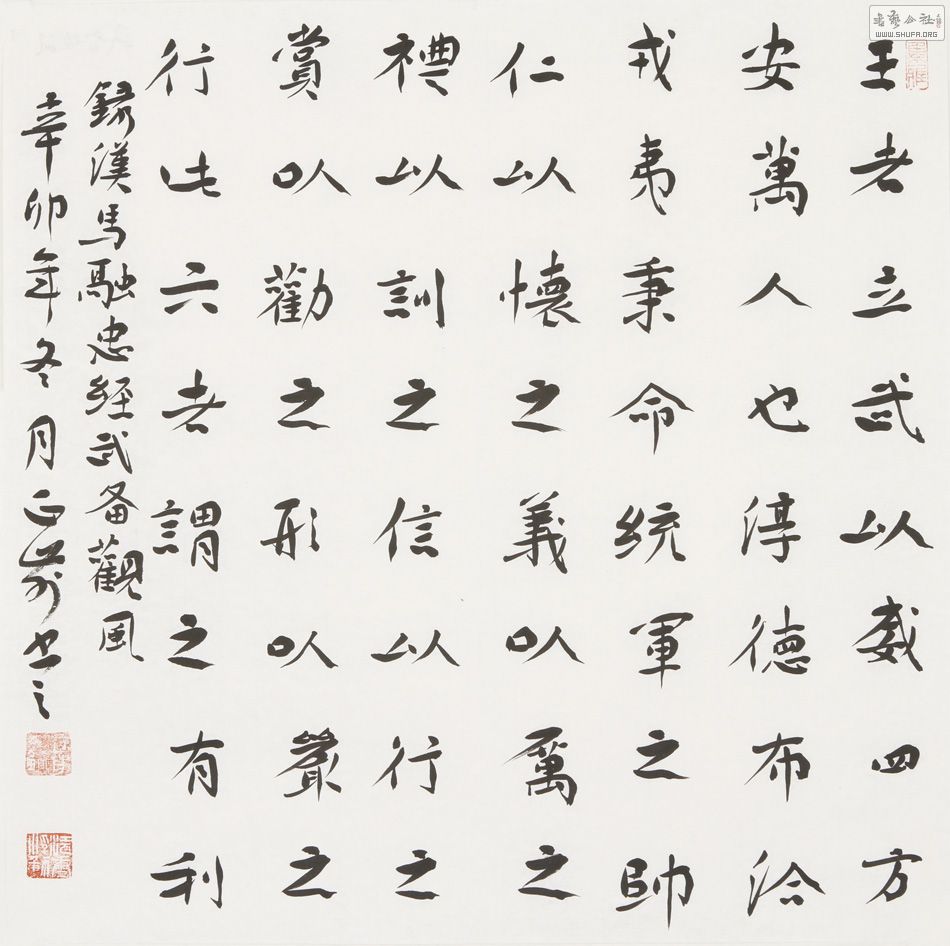 書藝公社
WWW.SHUFA.ORG
王者立武以威四方
安萬人也淳德布洽
戎夷秉命統軍之帥
仁以懷之義以厲之
禮以訓之信以行之
賞以勸之形以嚴之
行此六者謂之有利
録漢馬融忠经武备觀風
辛卯年冬月正书之